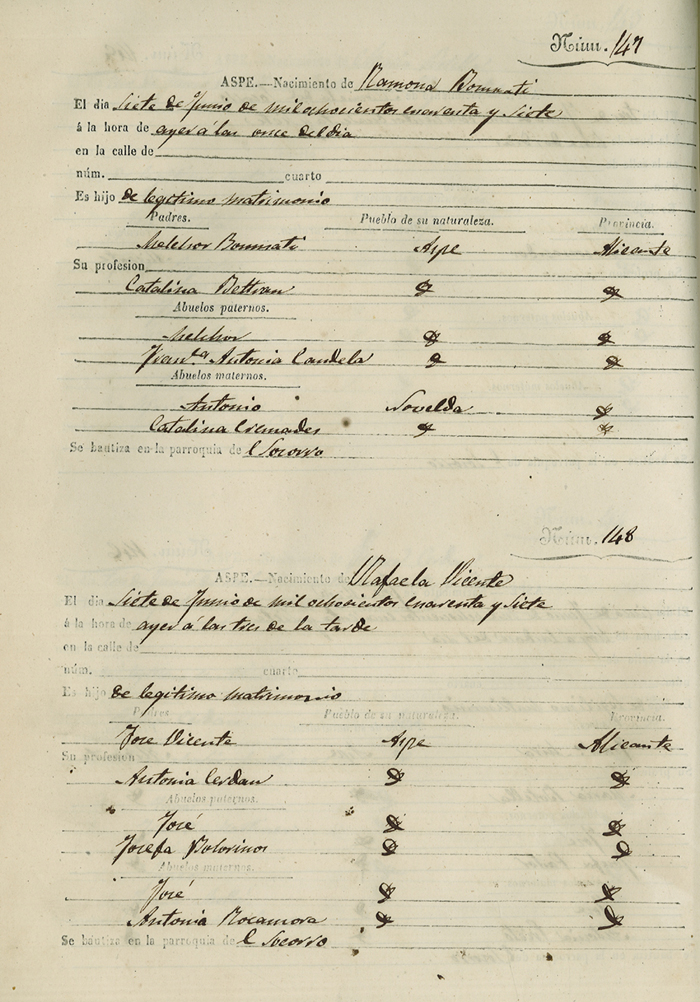 Núm. 147
ASPE.—Nacimiento de Ramona Bonmati
El dia siete de Junio de mil ochocientos cuarenta y siete
á la hora de ayer á las once del dia
en la calle de
núm. cuarto
Es hijo de legitimo matrimonio
Padres. Pueblo de su naturaleza. Provincia.
Melchor Bonmati Aspe Alicante
Su profesion
Catalina Beltran
Abuelos paternos.
Melchor
Fran.ca Antonia Candela
Abuelos maternos.
Antonio Novelda
Catalina Cremades
Se bautiza en la parroquia de l Socorro
Núm. 148
ASPE.—Nacimiento de Rafaela Vicente
El dia siete de Junio de mil ochocientos cuarenta y siete
á la hora de ayer á las tres de la tarde
en la calle de
núm. cuarto
Es hijo de legitimo matrimonio
Padres. Pueblo de su naturaleza. Provincia.
Jose Vicente Aspe Alicante
Su profesion
Antonia Cerdan
Abuelos paternos.
José
Josefa Bolorinos
Abuelos maternos.
José
Antonia Rocamora
Se bautiza en la parroquia de l Socorro